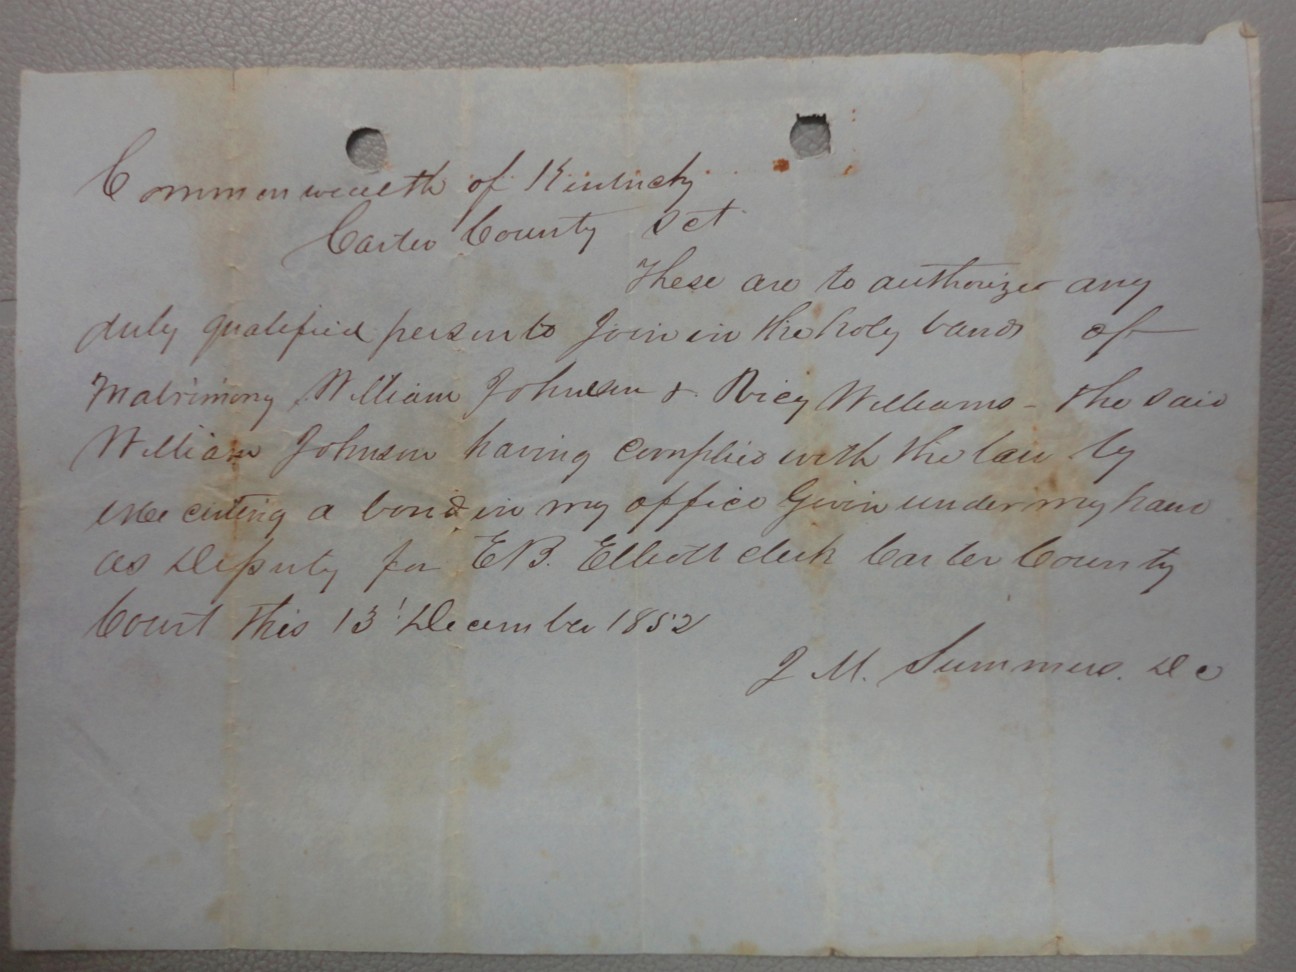 Commonwealth of Kentucky
Carter County Sct
These are to authorize any
duly qualified person to Join in the holy bands of
Matrimony William Johnson & Vicy Williams - the said
William Johnson having complied with the law by
executing a bond in my office Given under my hand
as Deputy for E B. Elliott clerk Carter County
Court this 13' December 1852
J M. Summers. D C